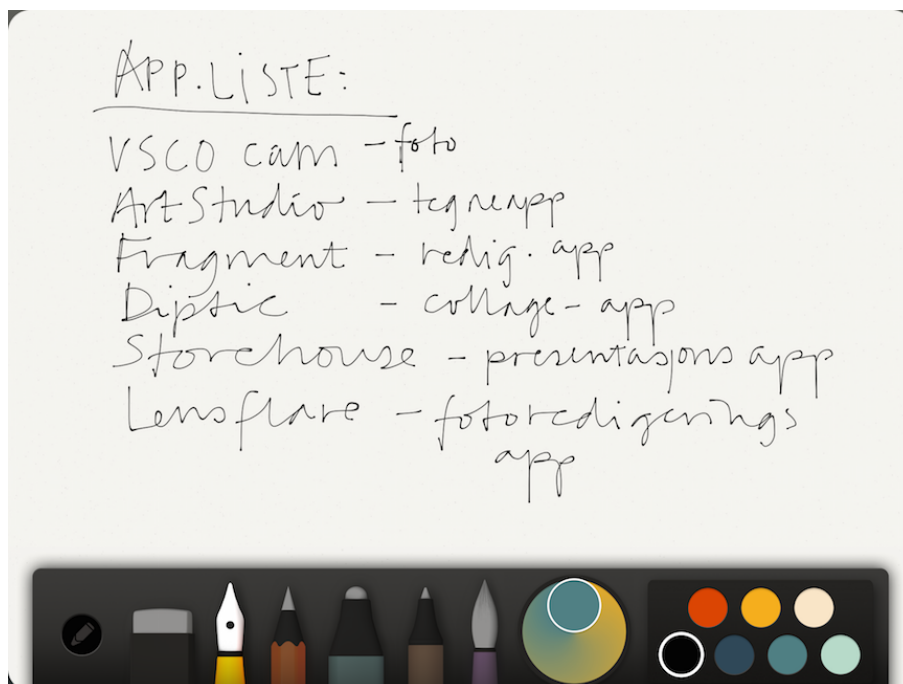 APP.LISTE:
VSCO cam - foto
ArtStudio - tegneapp
Fragment - redig. app
Diptic - collage-app
Storehouse - presentasjons app
Lensflare - fotoredigerings
app